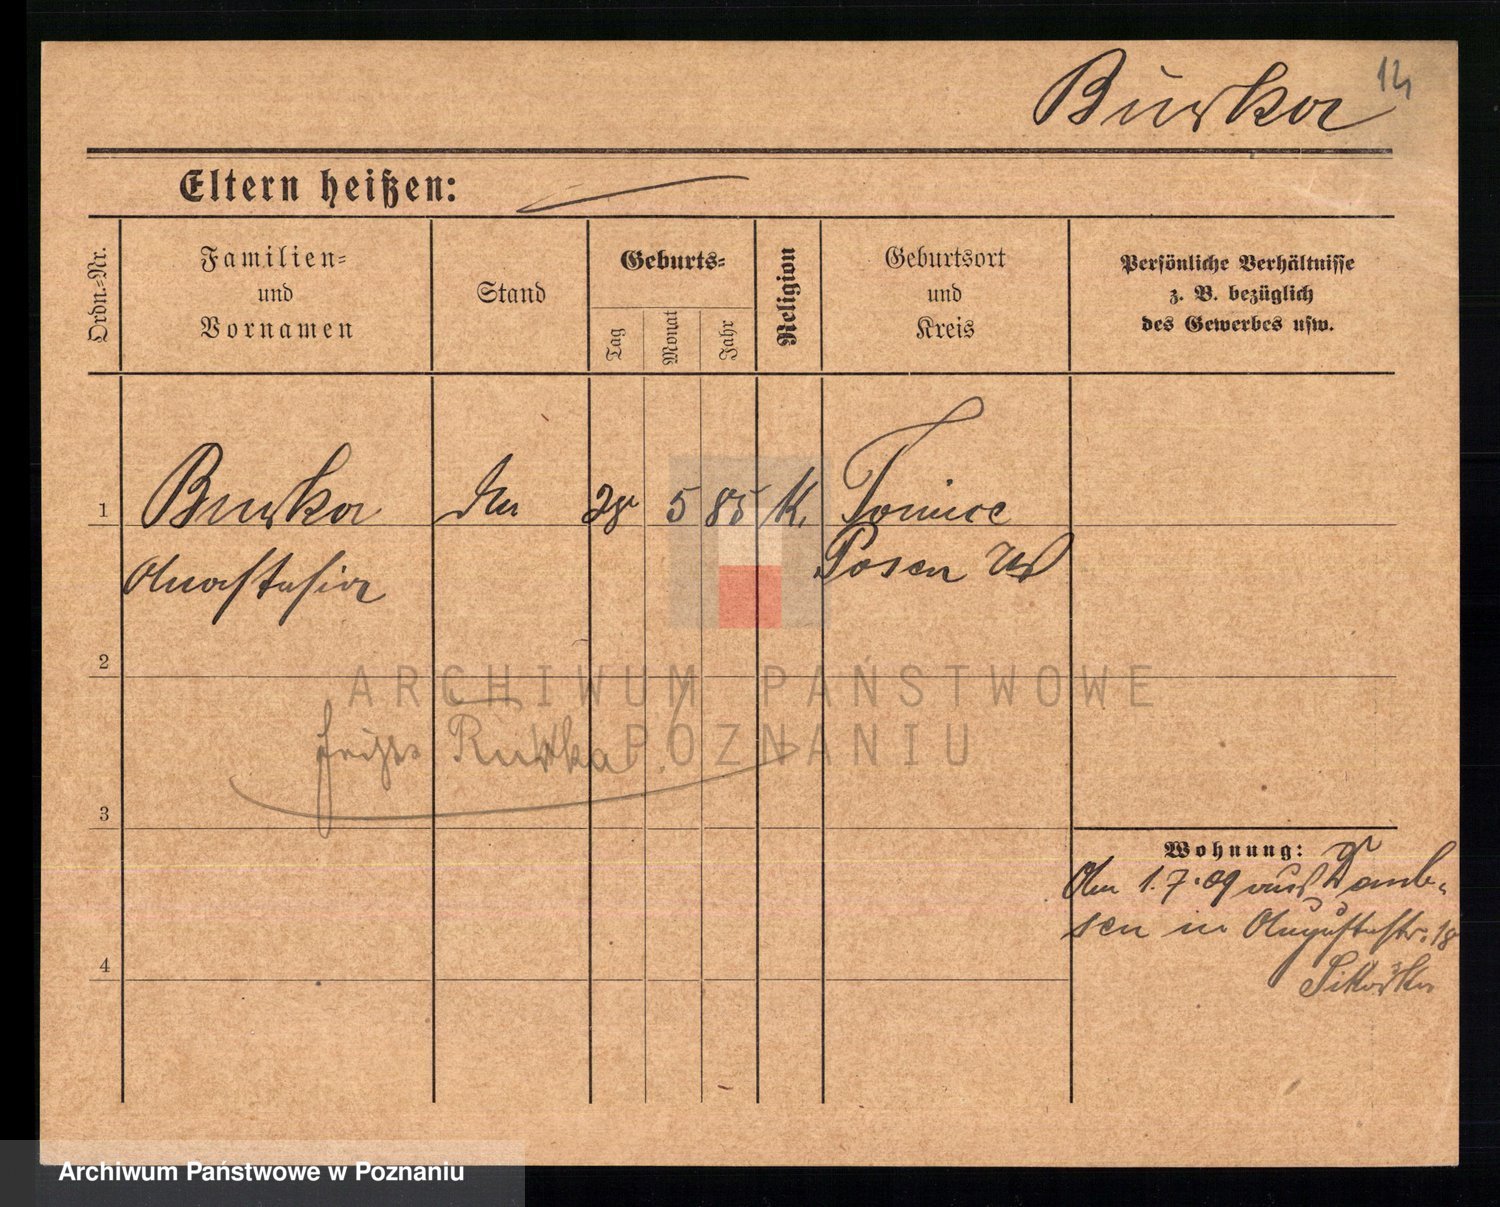 Burka
14
Eltern heißen:
Ordn.-Nr.
Familien-
und
Vornamen
Stand
Geburts-
Tag
Monat
Jahr
Religion
Geburtsort
und
Kreis
Persönliche Verhältnisse
z. B. bezüglich
des Gewerbes usw.
1
Burka
5 85 K.
Tomice
Anastasia
Posen W
2
ARCHIWUM PAŃSTWOWE
POZNANIU
3
Wohnung:
Am 1.7.09 aus Damb-
sen in Augustastr. 18
4
Archiwum Państwowe w Poznaniu